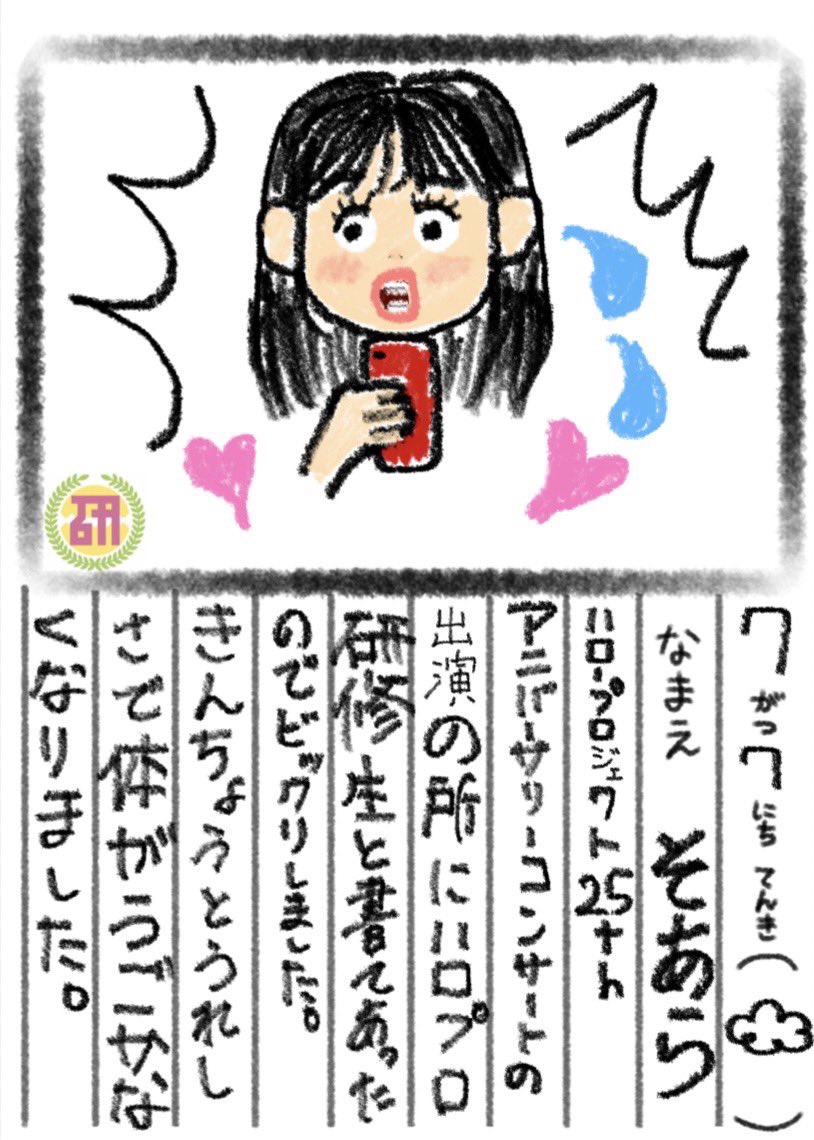 7がつ7にち てんき( )
なまえ そあら
ハロープロジェクト25ナん
アニバーサリーコンサートの
出演の所にハロプロ
研修生と書てあった
のでビックリしました。
きんちょうとうれし
さで体がうごかな
くなりました。
研